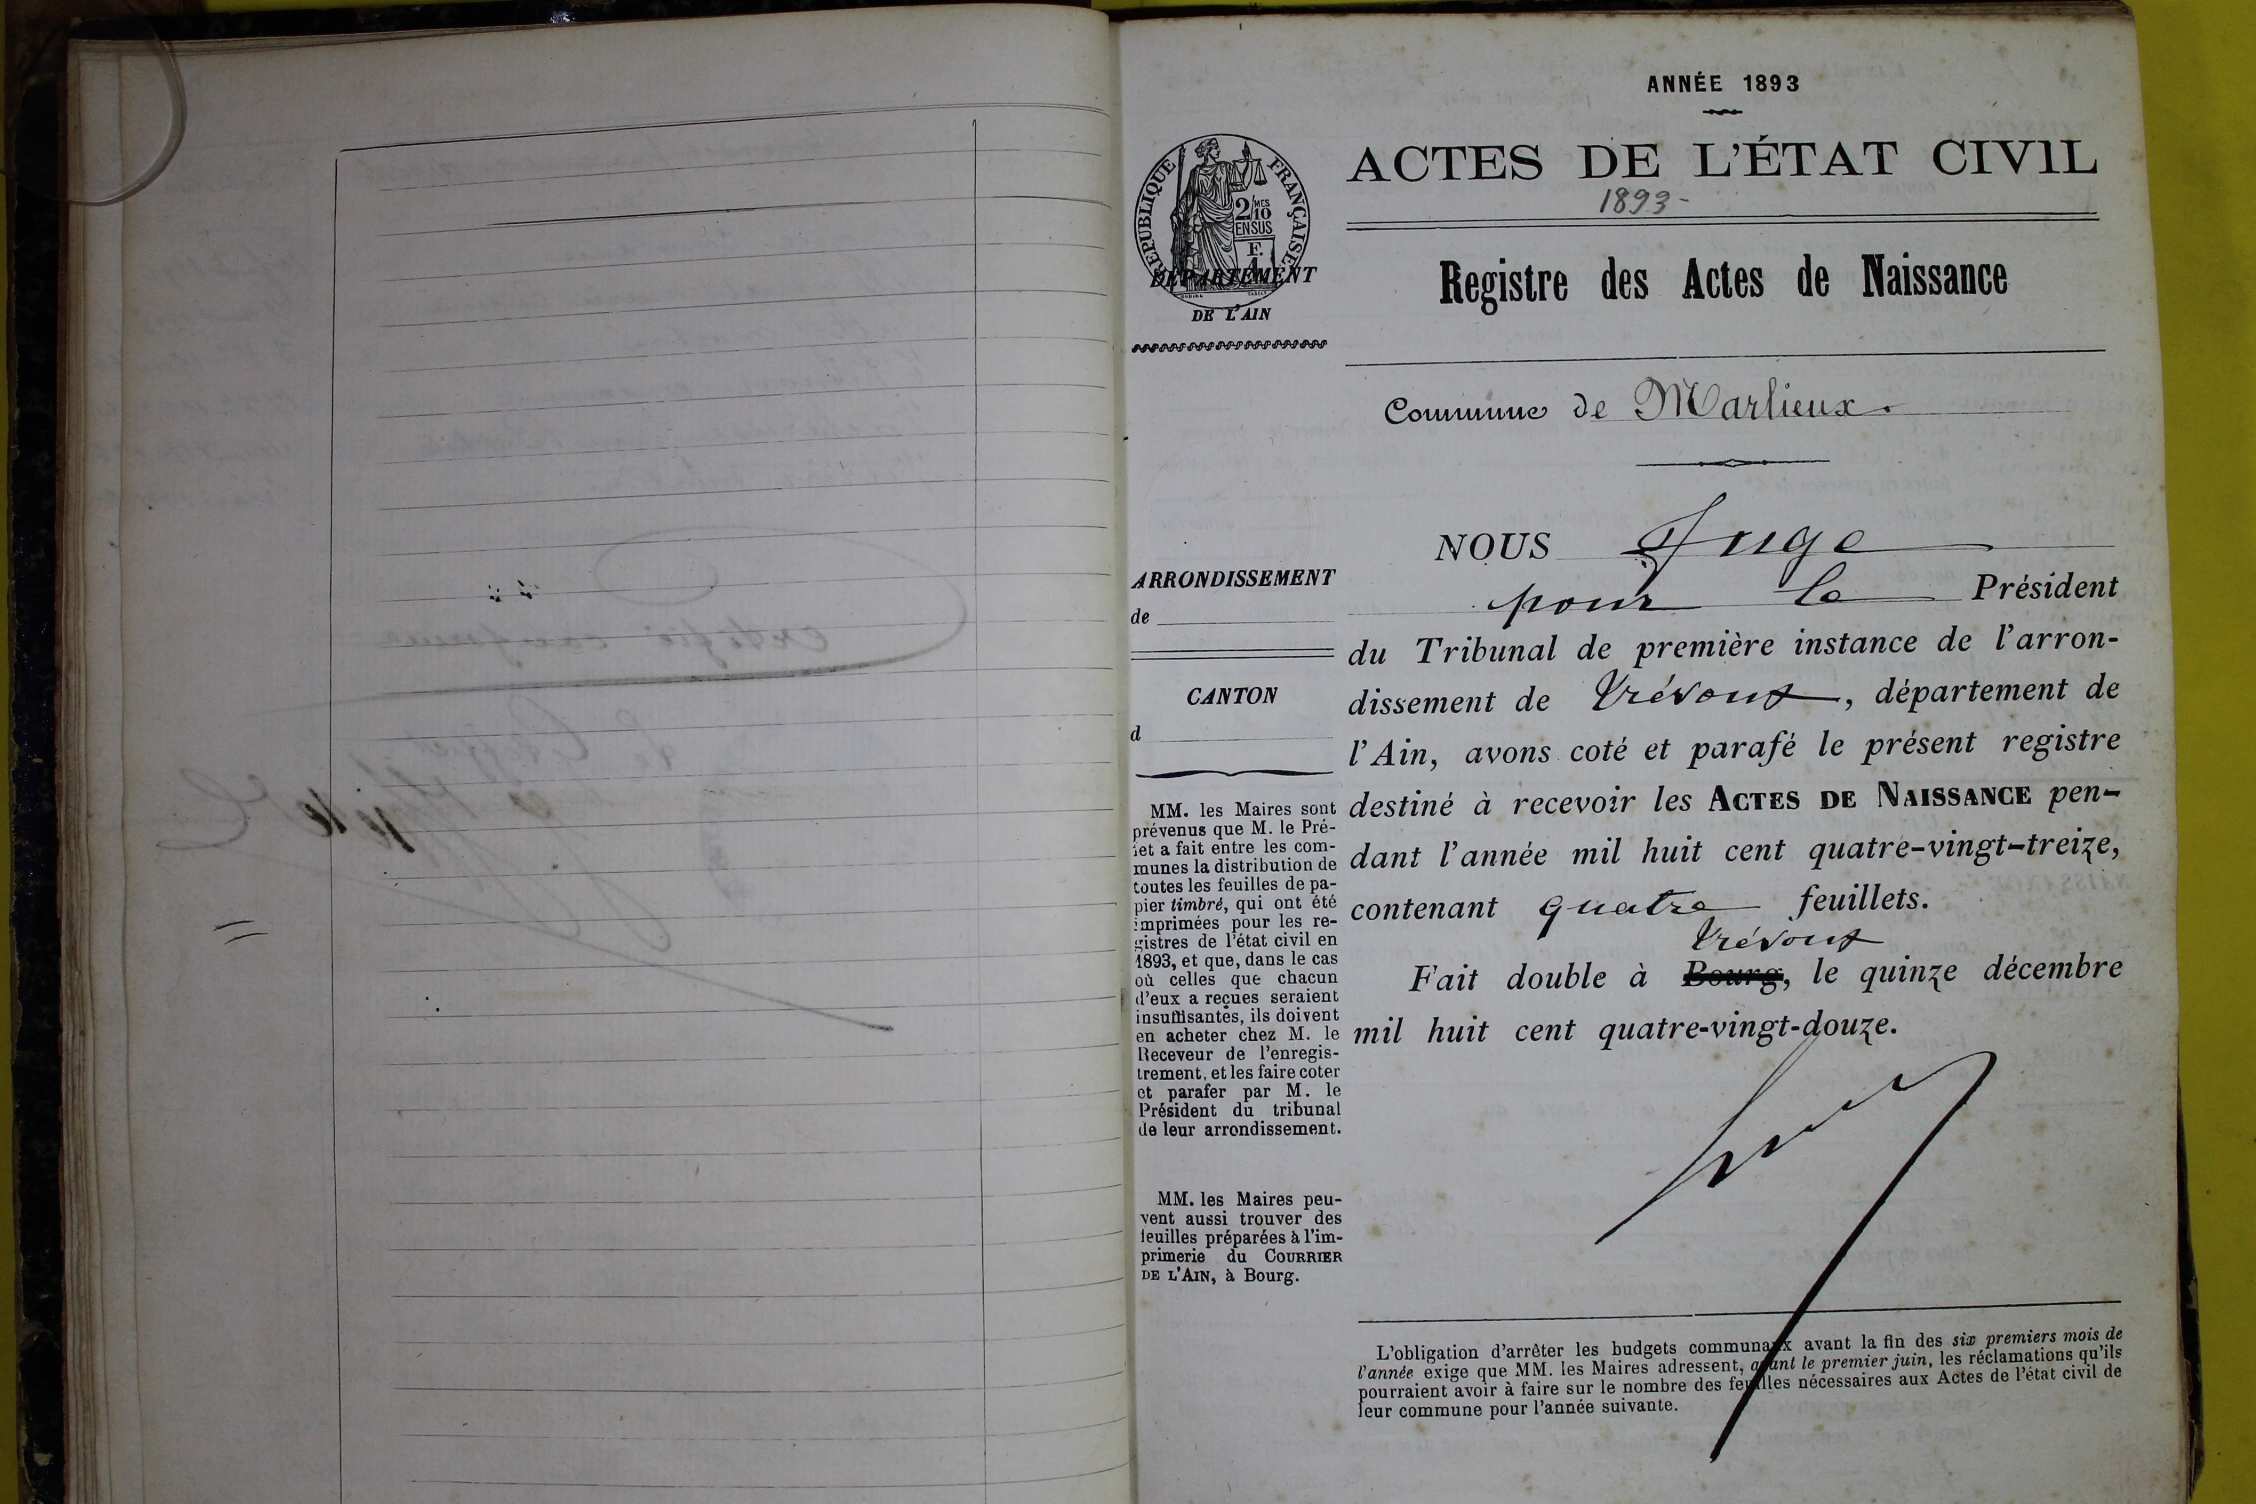 ANNÉE 1893
ACTES DE L'ÉTAT CIVIL
1893-
RÉPUBLIQUE FRANÇAISE
2/10 MES
EN SUS
F.
DÉPARTEMENT
DE L'AIN
Registre des Actes de Naissance
Commune de Marlieux.
ARRONDISSEMENT
de
CANTON
d
MM. les Maires sont
prévenus que M. le Pré-
fet a fait entre les com-
munes la distribution de
toutes les feuilles de pa-
pier timbré, qui ont été
imprimées pour les re-
gistres de l'état civil en
1893, et que, dans le cas
où celles que chacun
d'eux a reçues seraient
insuffisantes, ils doivent
en acheter chez M. le
Receveur de l'enregis-
trement, et les faire coter
et parafer par M. le
Président du tribunal
de leur arrondissement.
MM. les Maires peu-
vent aussi trouver des
feuilles préparées à l'im-
primerie du COURRIER
DE L'AIN, à Bourg.
NOUS Juge
pour le Président
du Tribunal de première instance de l'arron-
dissement de Trévoux, département de
l'Ain, avons coté et parafé le présent registre
destiné à recevoir les ACTES DE NAISSANCE pen-
dant l'année mil huit cent quatre-vingt-treize,
contenant quatre feuillets.
Trévoux
Fait double à Bourg, le quinze décembre
mil huit cent quatre-vingt-douze.
L'obligation d'arrêter les budgets communaux avant la fin des six premiers mois de
l'année exige que MM. les Maires adressent, avant le premier juin, les réclamations qu'ils
pourraient avoir à faire sur le nombre des feuilles nécessaires aux Actes de l'état civil de
leur commune pour l'année suivante.